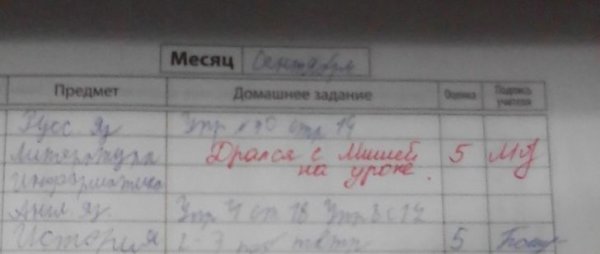 Месяц Сентябрь
Предмет Домашнее задание Оценка Подпись учителя
Русс. яз Упр стр 14
Литература Дрался с Мишей 5
на уроке.
Информатика
Англ яз Упр 4 ст 18 Упр 3 с 12
История 2-3 5